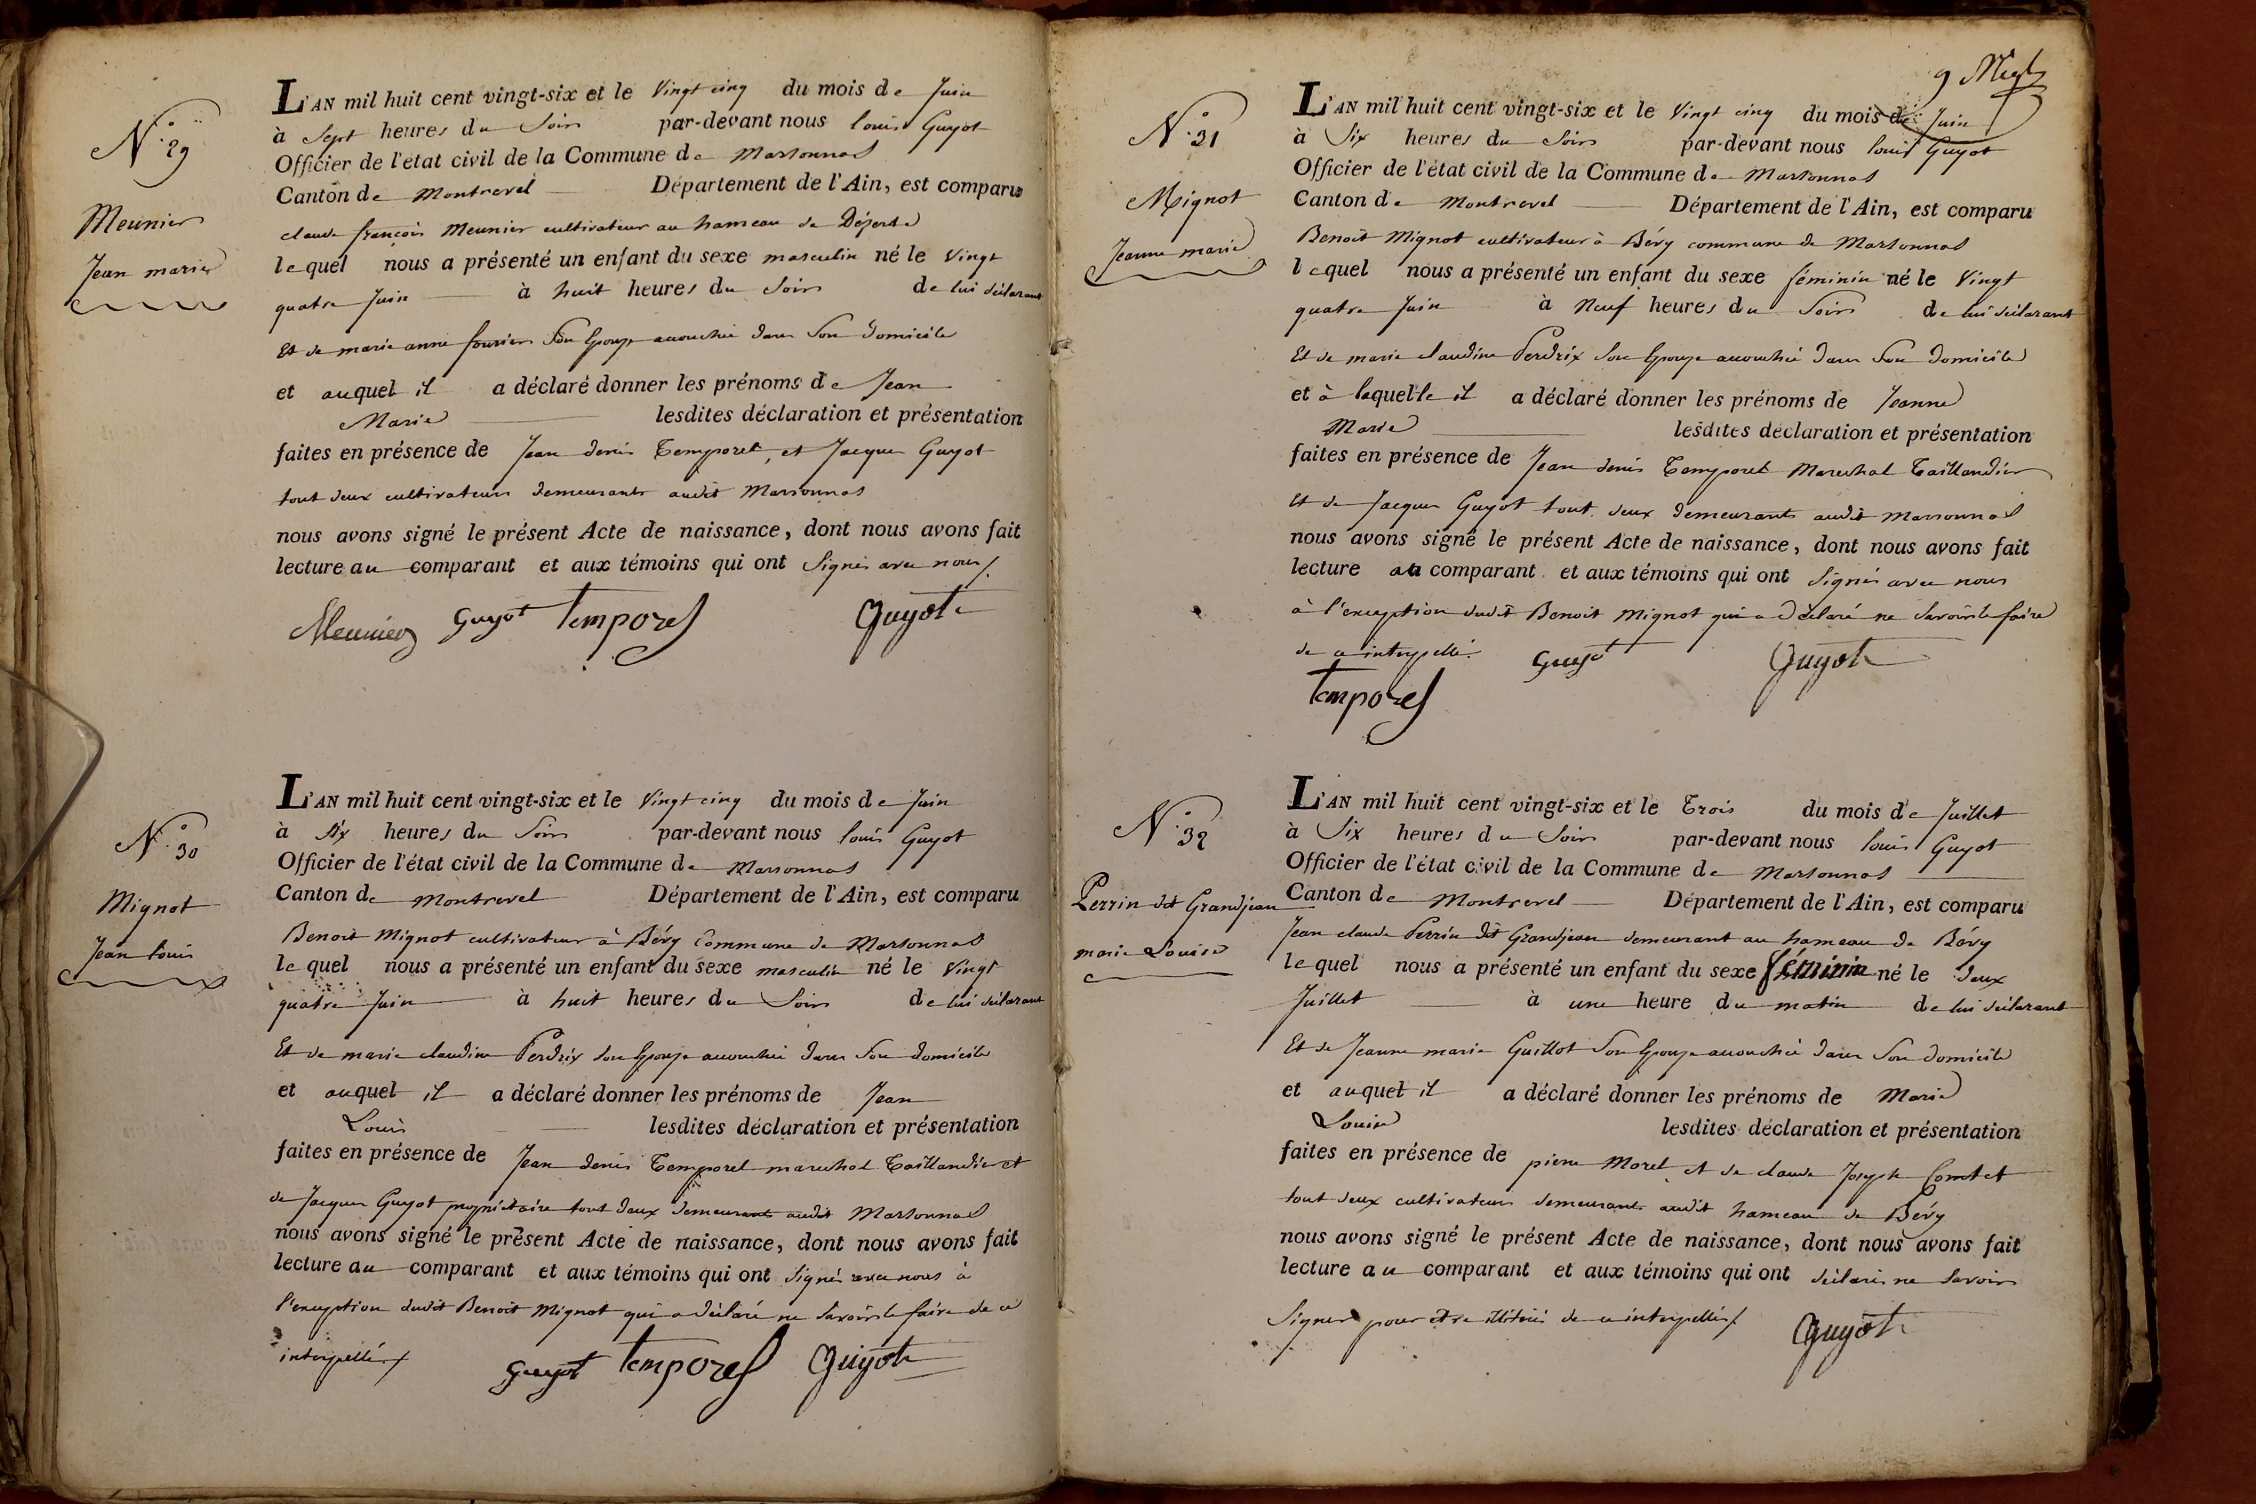 N.° 29
Meunier
Jean marie
L'AN mil huit cent vingt-six et le Vingt cinq du mois de Juin
à Sept heures du Soir par-devant nous louis Guyot
Officier de l'etat civil de la Commune de Marsonnas
Canton de Montrevel Département de l'Ain, est comparu
claude françois Meunier cultivateur au hameau de Déserte
lequel nous a présenté un enfant du sexe masculin né le Vingt
quatre Juin à huit heures du Soir de lui déclarant
Et de marie anne fourier Son Epouse accouchée dans Son domicile
et auquel il a déclaré donner les prénoms de Jean
Marie lesdites déclaration et présentation
faites en présence de Jean denis Temporel, et Jacques Guyot
tout deux cultivateurs demeurants audit Marsonnas
nous avons signé le présent Acte de naissance, dont nous avons fait
lecture au comparant et aux témoins qui ont Signés avec nous /.
Meunier Guyot Temporel Guyot
N.° 30
Mignot
Jean louis
L'AN mil huit cent vingt-six et le Vingt cinq du mois de Juin
à Six heures du Soir par-devant nous louis Guyot
Officier de l'état civil de la Commune de Marsonnas
Canton de Montrevel Département de l'Ain, est comparu
Benoit Mignot cultivateur à Bévy Commune de Marsonnas
lequel nous a présenté un enfant du sexe masculin né le Vingt
quatre Juin à huit heures du Soir de lui déclarant
Et de marie claudine Perdrix Son Epouse accouchée dans Son domicile
et auquel il a déclaré donner les prénoms de Jean
Louis lesdites déclaration et présentation
faites en présence de Jean denis Temporel marechal Taillandier et
de Jacques Guyot propriétaire tout deux demeurants audit Marsonnas
nous avons signé le présent Acte de naissance, dont nous avons fait
lecture au comparant et aux témoins qui ont Signés avec nous à
l'exception dudit Benoit Mignot qui a déclaré ne Savoir le faire de ce
interpellé /.
Guyot Temporel Guyot
N.° 31
Mignot
Jeanne marie
L'AN mil huit cent vingt-six et le Vingt cinq du mois de Juin
à Six heures du Soir par-devant nous louis Guyot
Officier de l'état civil de la Commune de Marsonnas
Canton de Montrevel Département de l'Ain, est comparu
Benoit Mignot cultivateur à Bévy commune de Marsonnas
lequel nous a présenté un enfant du sexe féminin né le Vingt
quatre Juin à Neuf heures du Soir de lui déclarant
Et de marie claudine Perdrix Son Epouse accouchée dans Son domicile
et à laquelle il a déclaré donner les prénoms de Jeanne
Marie lesdites déclaration et présentation
faites en présence de Jean denis Temporel Marechal Taillandier
Et de Jacques Guyot tout deux demeurants audit Marsonnas
nous avons signé le présent Acte de naissance, dont nous avons fait
lecture au comparant et aux témoins qui ont Signés avec nous
à l'exception dudit Benoit Mignot qui a déclaré ne Savoir le faire
de ce interpellé.
Guyot Guyot
Temporel
N.° 32
Perrin dit Grandjean
marie Louise
L'AN mil huit cent vingt-six et le Trois du mois de Juillet
à Six heures du Soir par-devant nous louis Guyot
Officier de l'état civil de la Commune de Marsonnas
Canton de Montrevel Département de l'Ain, est comparu
Jean claude Perrin dit Grandjean demeurant au hameau de Bévy
lequel nous a présenté un enfant du sexe féminin né le deux
Juillet à une heure du matin de lui déclarant
Et de Jeanne marie Guillot Son Epouse accouchée dans Son domicile
et auquel il a déclaré donner les prénoms de Marie
Louise lesdites déclaration et présentation
faites en présence de pierre Morel et de claude Joseph Comtet
tout deux cultivateurs demeurants audit hameau de Bévy
nous avons signé le présent Acte de naissance, dont nous avons fait
lecture au comparant et aux témoins qui ont déclarés ne Savoir
Signer pour etre illitérés de ce interpellés /.
Guyot